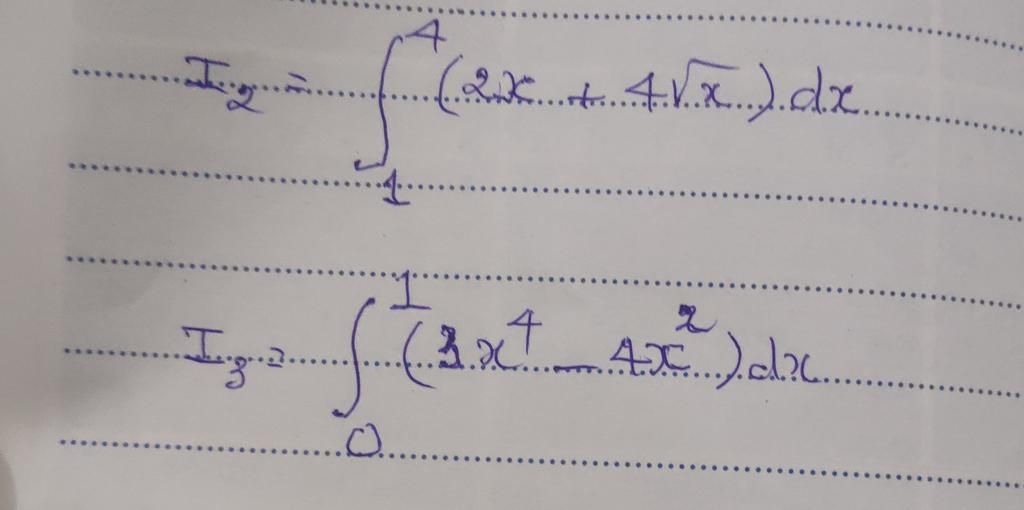 I₂ = ∫₁⁴ (2x + 4√x) dx
I₃ = ∫₀¹ (3x⁴ - 4x²) dx